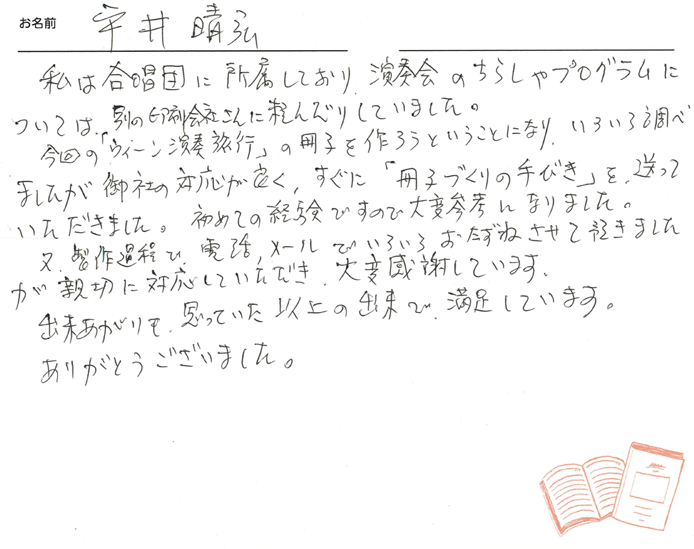 お名前 宇井 晴弘
私は合唱団に所属しており、演奏会のちらしやプログラムに
ついては、別の印刷会社さんに頼んだりしていました。
今回の「ウィーン演奏旅行」の冊子を作ろうということになり、いろいろ調べ
ましたが御社の対応が良く、すぐに「冊子づくりの手びき」を、送って
いただきました。初めての経験ですので大変参考になりました。
又、製作過程で、電話、メールでいろいろおたずねさせて頂きました
が親切に対応していただき、大変感謝しています、
出来あがりも、思っていた以上の出来で、満足しています。
ありがとうございました。